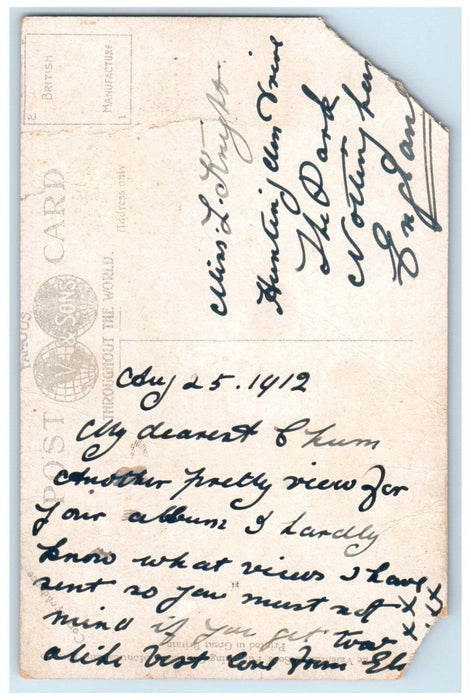 BRITISH
MANUFACTURE
POST CARD
FAMOUS
V & SONS
THROUGHOUT THE WORLD.
Address only
Miss L. Knight
Hunting
The Park
England
Aug 25. 1912
My dearest Chum
Another pretty view for
your album I hardly
know what views I have
sent so you must not xx
mind if you get two xx
alike best love from
Printed in Great Britain